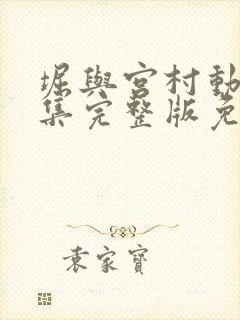 堀與宮村動
集完整版免
袁家寶